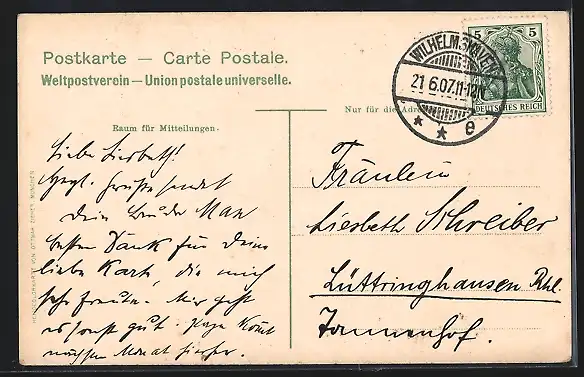 Postkarte — Carte Postale.
Weltpostverein — Union postale universelle.
WILHELMSHAVEN
21 6.07.11-12N
* * e
5 5
DEUTSCHES REICH
Nur für die Adre
Raum für Mitteilungen.
Liebe Liesbeth!
Herzl. Grüße sendet
Dein Bruder Max
besten Dank für Deine
liebe Karte, die mich
sehr freute. Mir geht
es sonst gut. Kommt
nächsten Monat hierher.
Fräulein
Liesbeth Schreiber
Lüttringhausen Rhl.
Tannenhof.